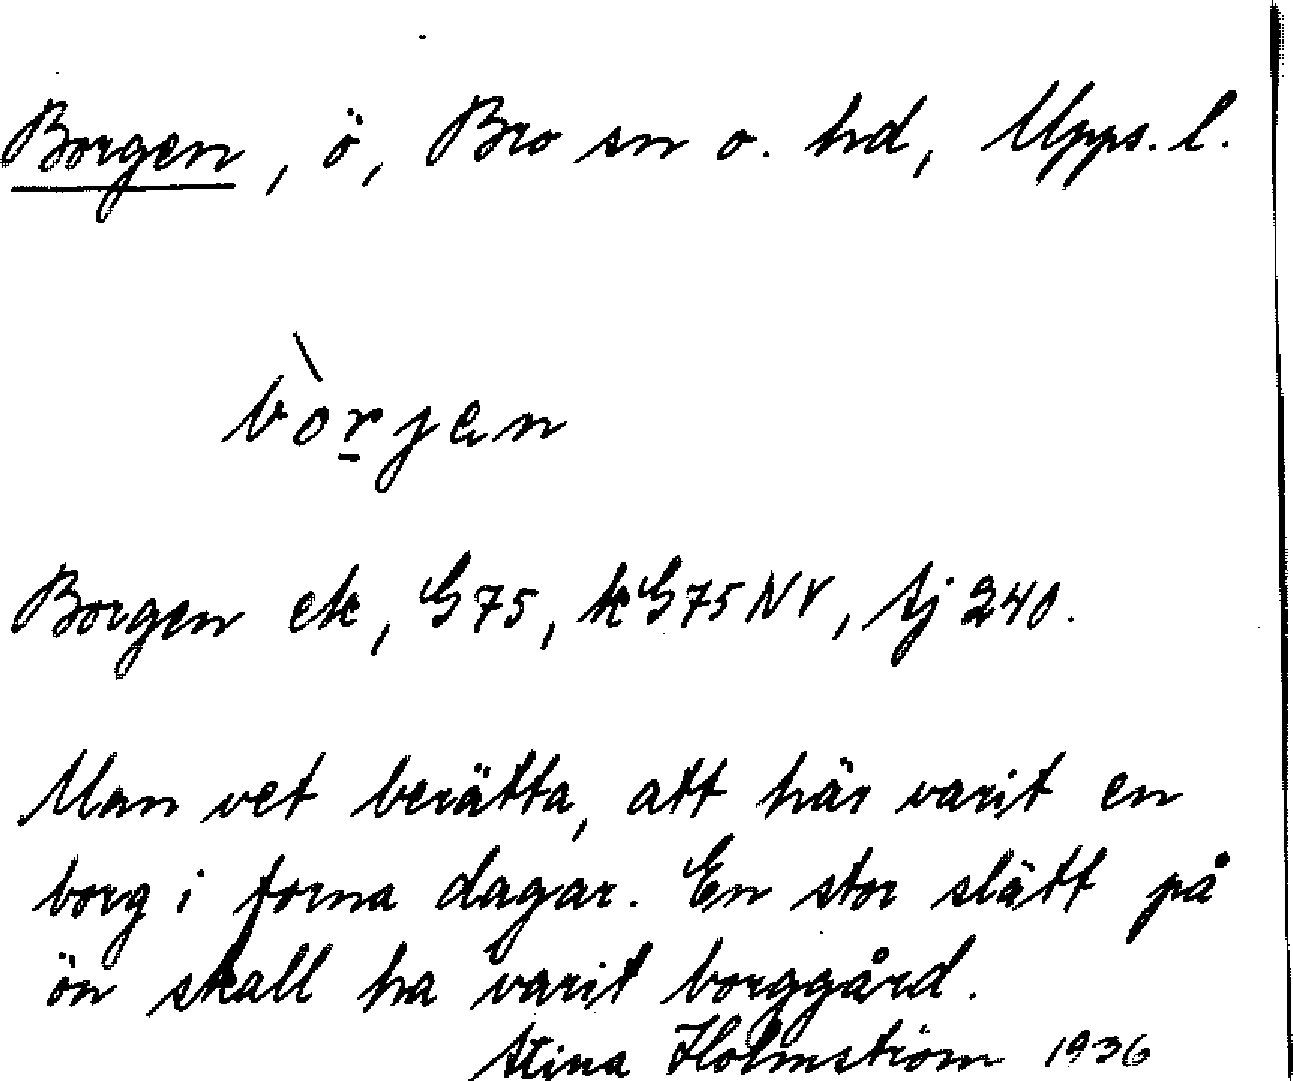 Borgen, ö, Bro sn o. hd, Upps. l.
bòrjen
Borgen ek, G75, kG75NV, lj 240.
Man vet berätta, att här varit en
borg i forna dagar. En stor slätt på
ön skall ha varit borggård.
Stina Holmström 1936